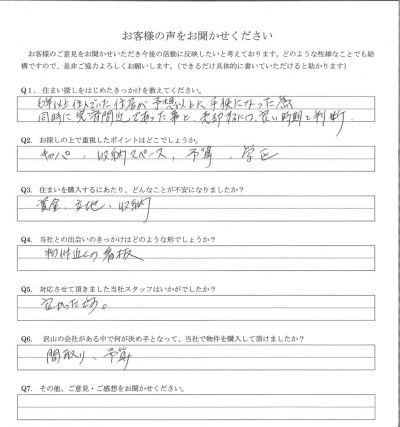 お客様の声をお聞かせください
お客様のご意見をお聞かせいただき今後の活動に反映したいと考えております。どのような些細なことでも結
構ですので、是非ご協力よろしくお願いします。（できるだけ具体的に書いていただけると助かります）
Q1. 住まい探しをはじめたきっかけを教えてください。
6年以上住んでいた住居が予想以上に手狭になった為
同時に完済間近であった事と、売却するには良い時期と判断。
Q2. お探しの上で重視したポイントはどこでしょうか。
、収納スペース、予算、学区
Q3. 住まいを購入するにあたり、どんなことが不安になりましたか？
資金、立地、収納
Q4. 当社との出会いのきっかけはどのような形でしょうか？
物件近くの看板
Q5. 対応させて頂きました当社スタッフはいかがでしたか？
良かったです。
Q6. 沢山の会社がある中で何が決め手となって、当社で物件を購入して頂けましたか？
間取り、予算
Q7. その他、ご意見・ご感想をお聞かせください。